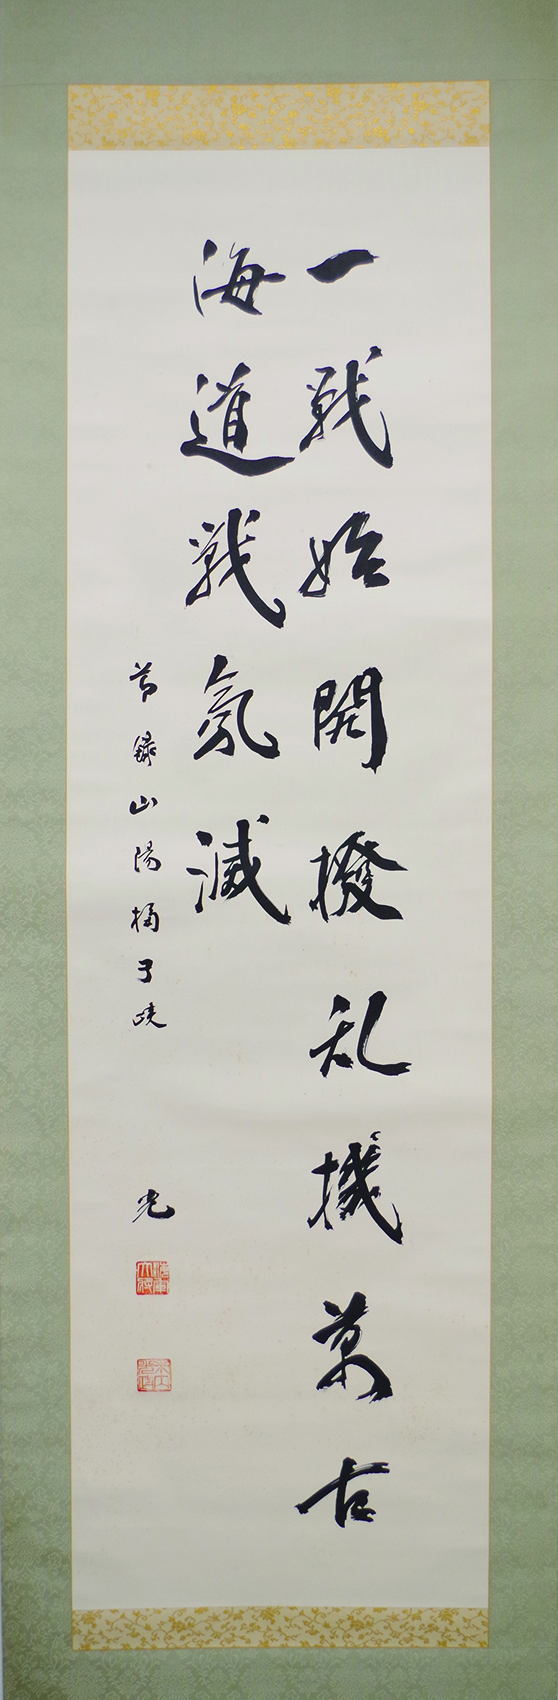 一戦始開撥乱機萬古
海道戦氛滅
節録山陽桶子峡
光